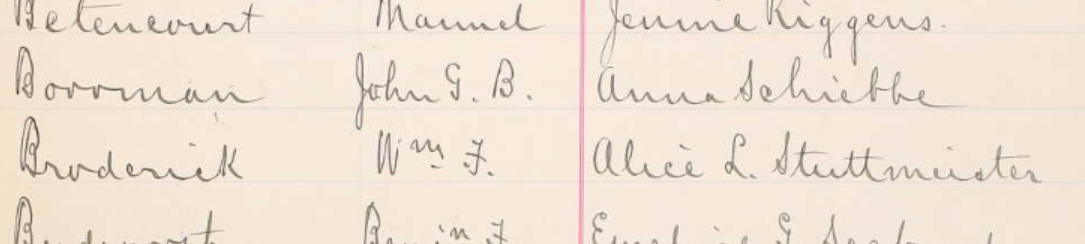 Betencourt Manuel Jennie Riggens.
Borrman John G. B. Anna Schiebbe
Broderick Wm F. Alice L. Stuttmeister